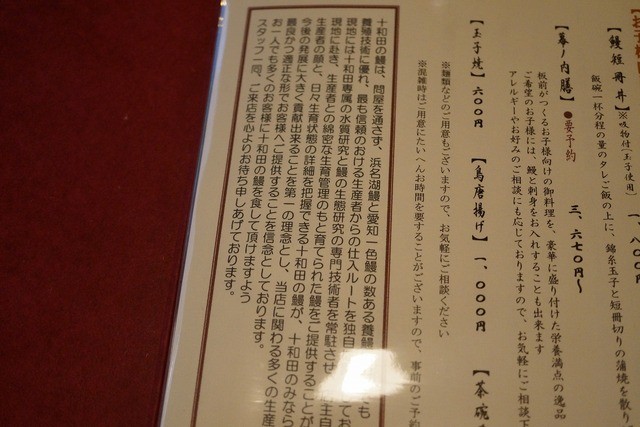 【鰻短冊丼】※吸物付(玉子使用) 一、八〇〇
飯碗一杯分程の量のタレご飯の上に、錦糸玉子と短冊切りの蒲焼を散り
【幕ノ内膳】●要予約 三、六七〇〜
板前がつくるお子様向けの御料理を、豪華に盛り付けた栄養満点の逸品
ご希望のお子様には、鰻と刺身をお入れすることも出来ます
アレルギーやお好みのご相談にも応じておりますので、お気軽にご相談下
【玉子焼】 六〇〇円 【鳥唐揚げ】 一、〇〇〇円 【茶碗
※麺類などのご用意もございますので、お気軽にご相談ください
※混雑時はご用意にたいへんお時間を要することがございますので、事前のご予
十和田の鰻は、問屋を通さず、浜名湖鰻と愛知一色鰻の数ある養鰻 でも
養殖技術に優れ、最も信頼のおける生産者からの仕入ルートを独自 てお
現地には十和田専属の水質研究と鰻の生態研究の専門技術者を常駐させ 店主自
現地に赴き、生産者との綿密な生育管理のもと育てられた鰻をご提供することが
生産者の顔と、日々生育状態の詳細を把握できる十和田の鰻が、十和田のみなら
今後の発展に大きく貢献出来ることを第一の理念とし、当店に関わる多くの生産
最良かつ適正な形でお客様へご提供することを信念としております。
お一人でも多くのお客様に十和田の鰻を食して頂けますよう
スタッフ一同、ご来店を心よりお待ち申しあげております。